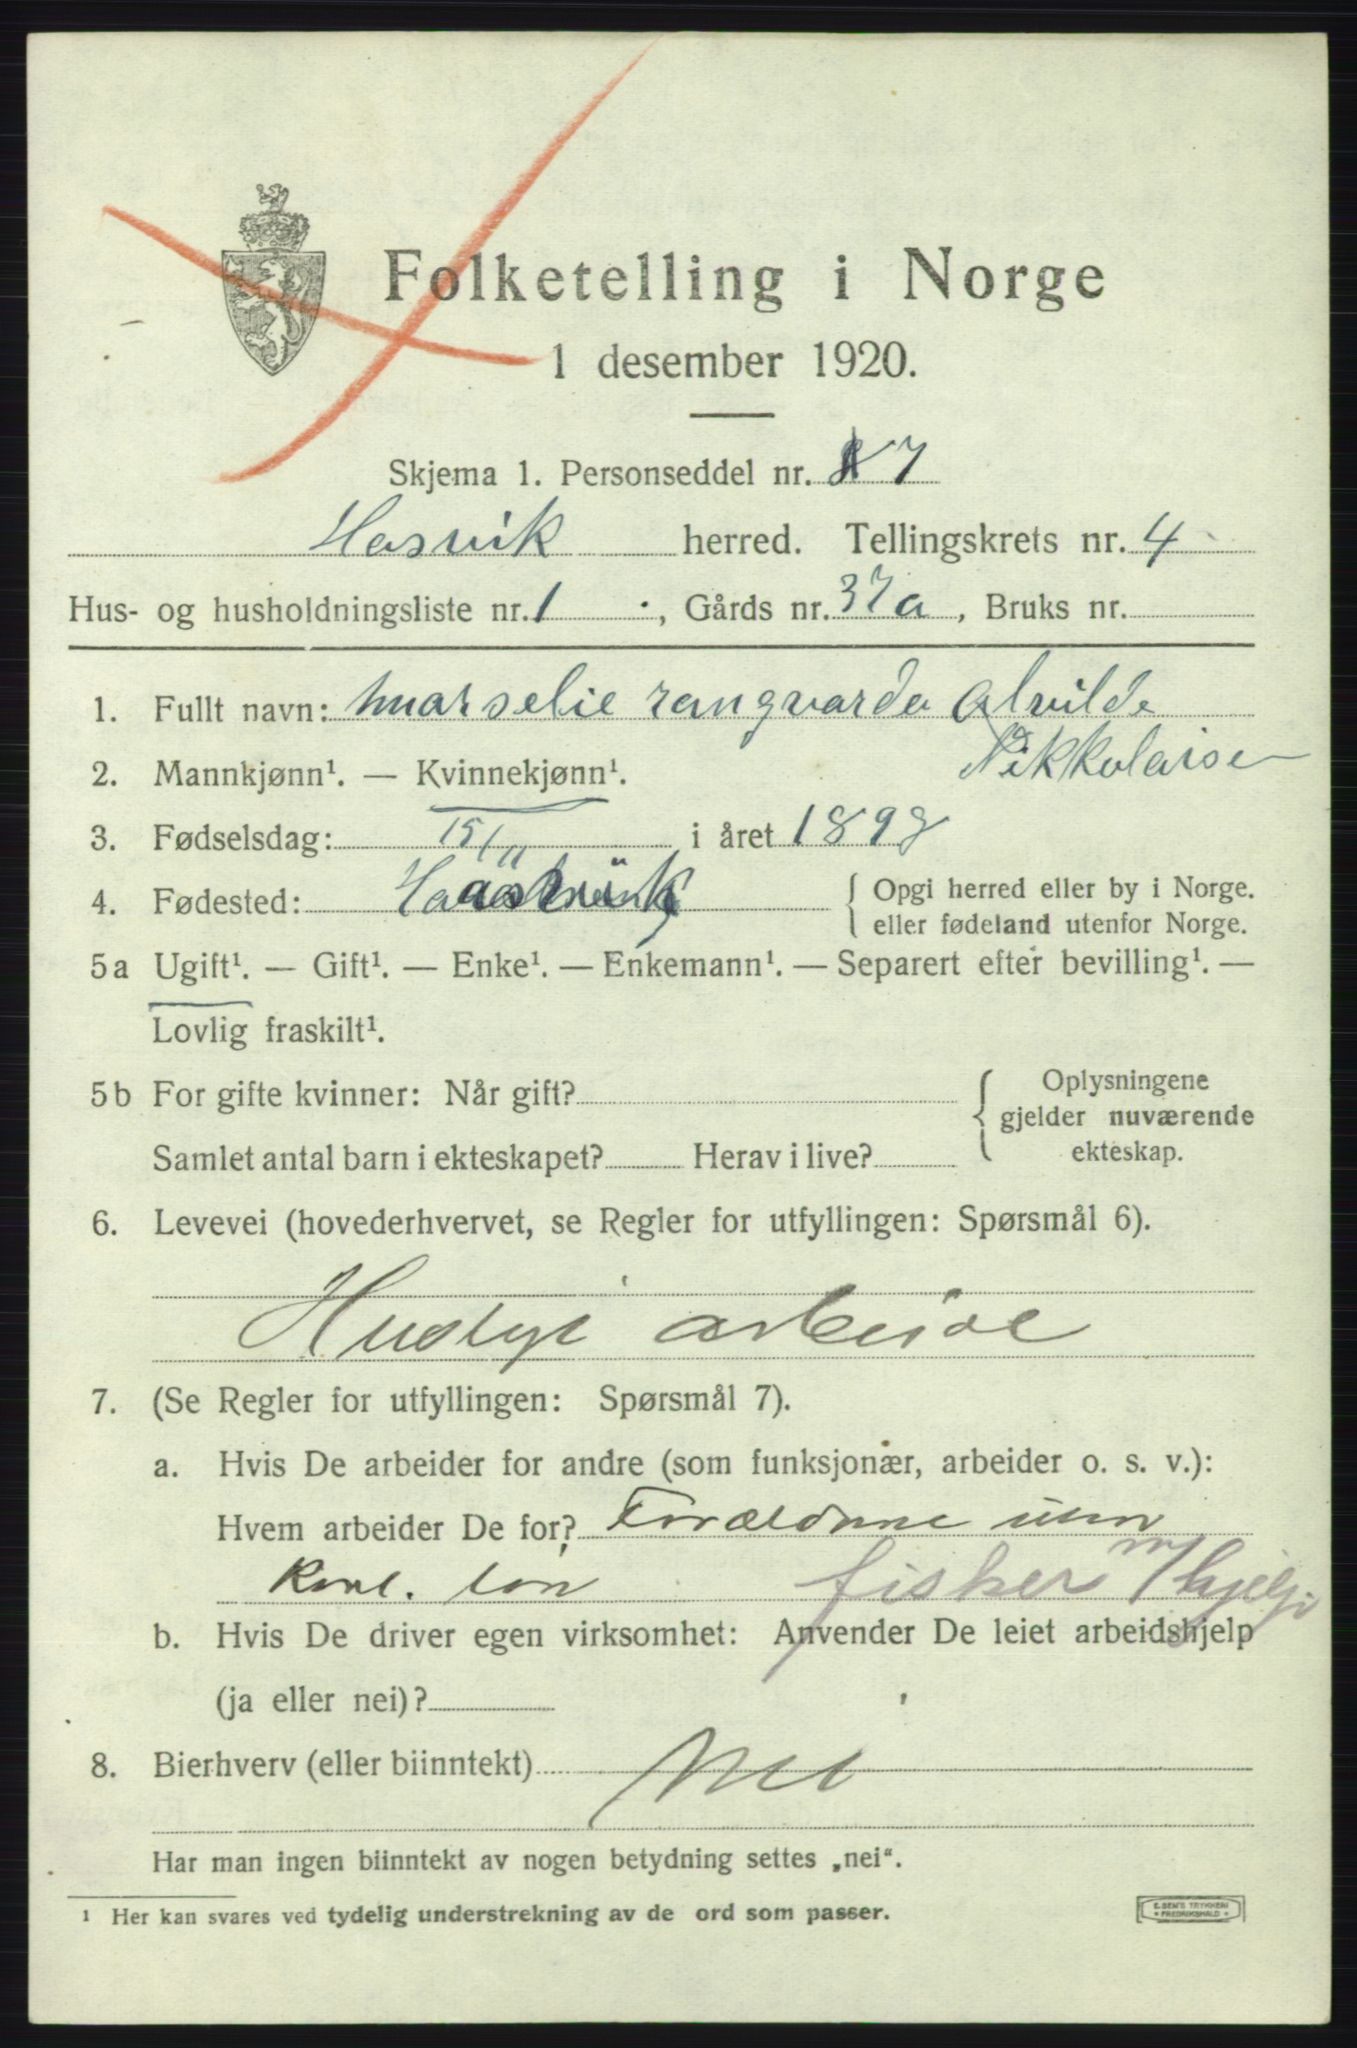 Folketelling i Norge
1 desember 1920.
Skjema 1. Personseddel nr. 7
Hasvik herred. Tellingskrets nr. 4
Hus- og husholdningsliste nr. 1, Gårds nr. 37a, Bruks nr.
1. Fullt navn: marselie rangvarda Alvilde
Nikkolaise
2. Mannkjønn¹. — Kvinnekjønn¹.
3. Fødselsdag: 15/11 i året 1898
4. Fødested: Hasvik { Opgi herred eller by i Norge.
eller fødeland utenfor Norge.
5a Ugift¹. — Gift¹. — Enke¹. — Enkemann¹. — Separert efter bevilling¹. —
Lovlig fraskilt¹.
5b For gifte kvinner: Når gift? { Oplysningene
gjelder nuværende
Samlet antal barn i ekteskapet? Herav i live? ekteskap.
6. Levevei (hovederhvervet, se Regler for utfyllingen: Spørsmål 6).
Huslye arbeide
7. (Se Regler for utfyllingen: Spørsmål 7).
a. Hvis De arbeider for andre (som funksjonær, arbeider o. s. v.):
Hvem arbeider De for? Forældrene uten
kont. løn fisker m/hjelp
b. Hvis De driver egen virksomhet: Anvender De leiet arbeidshjelp
(ja eller nei)?
8. Bierhverv (eller biinntekt) Nei
Har man ingen biinntekt av nogen betydning settes „nei“.
¹ Her kan svares ved tydelig understrekning av de ord som passer.
E. SEM'S TRYKKERI
FREDRIKSHALD